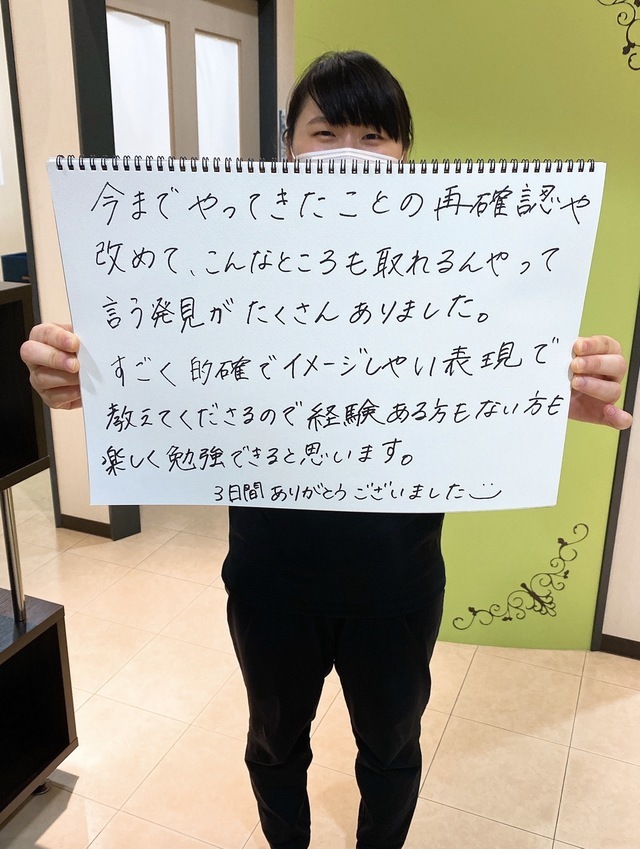 今までやってきたことの再確認や
改めて、こんなところも取れるんやって
言う発見がたくさんありました。
すごく的確でイメージしやい表現で
教えてくださるので経験ある方もない方も
楽しく勉強できると思います。
3日間ありがとうございました